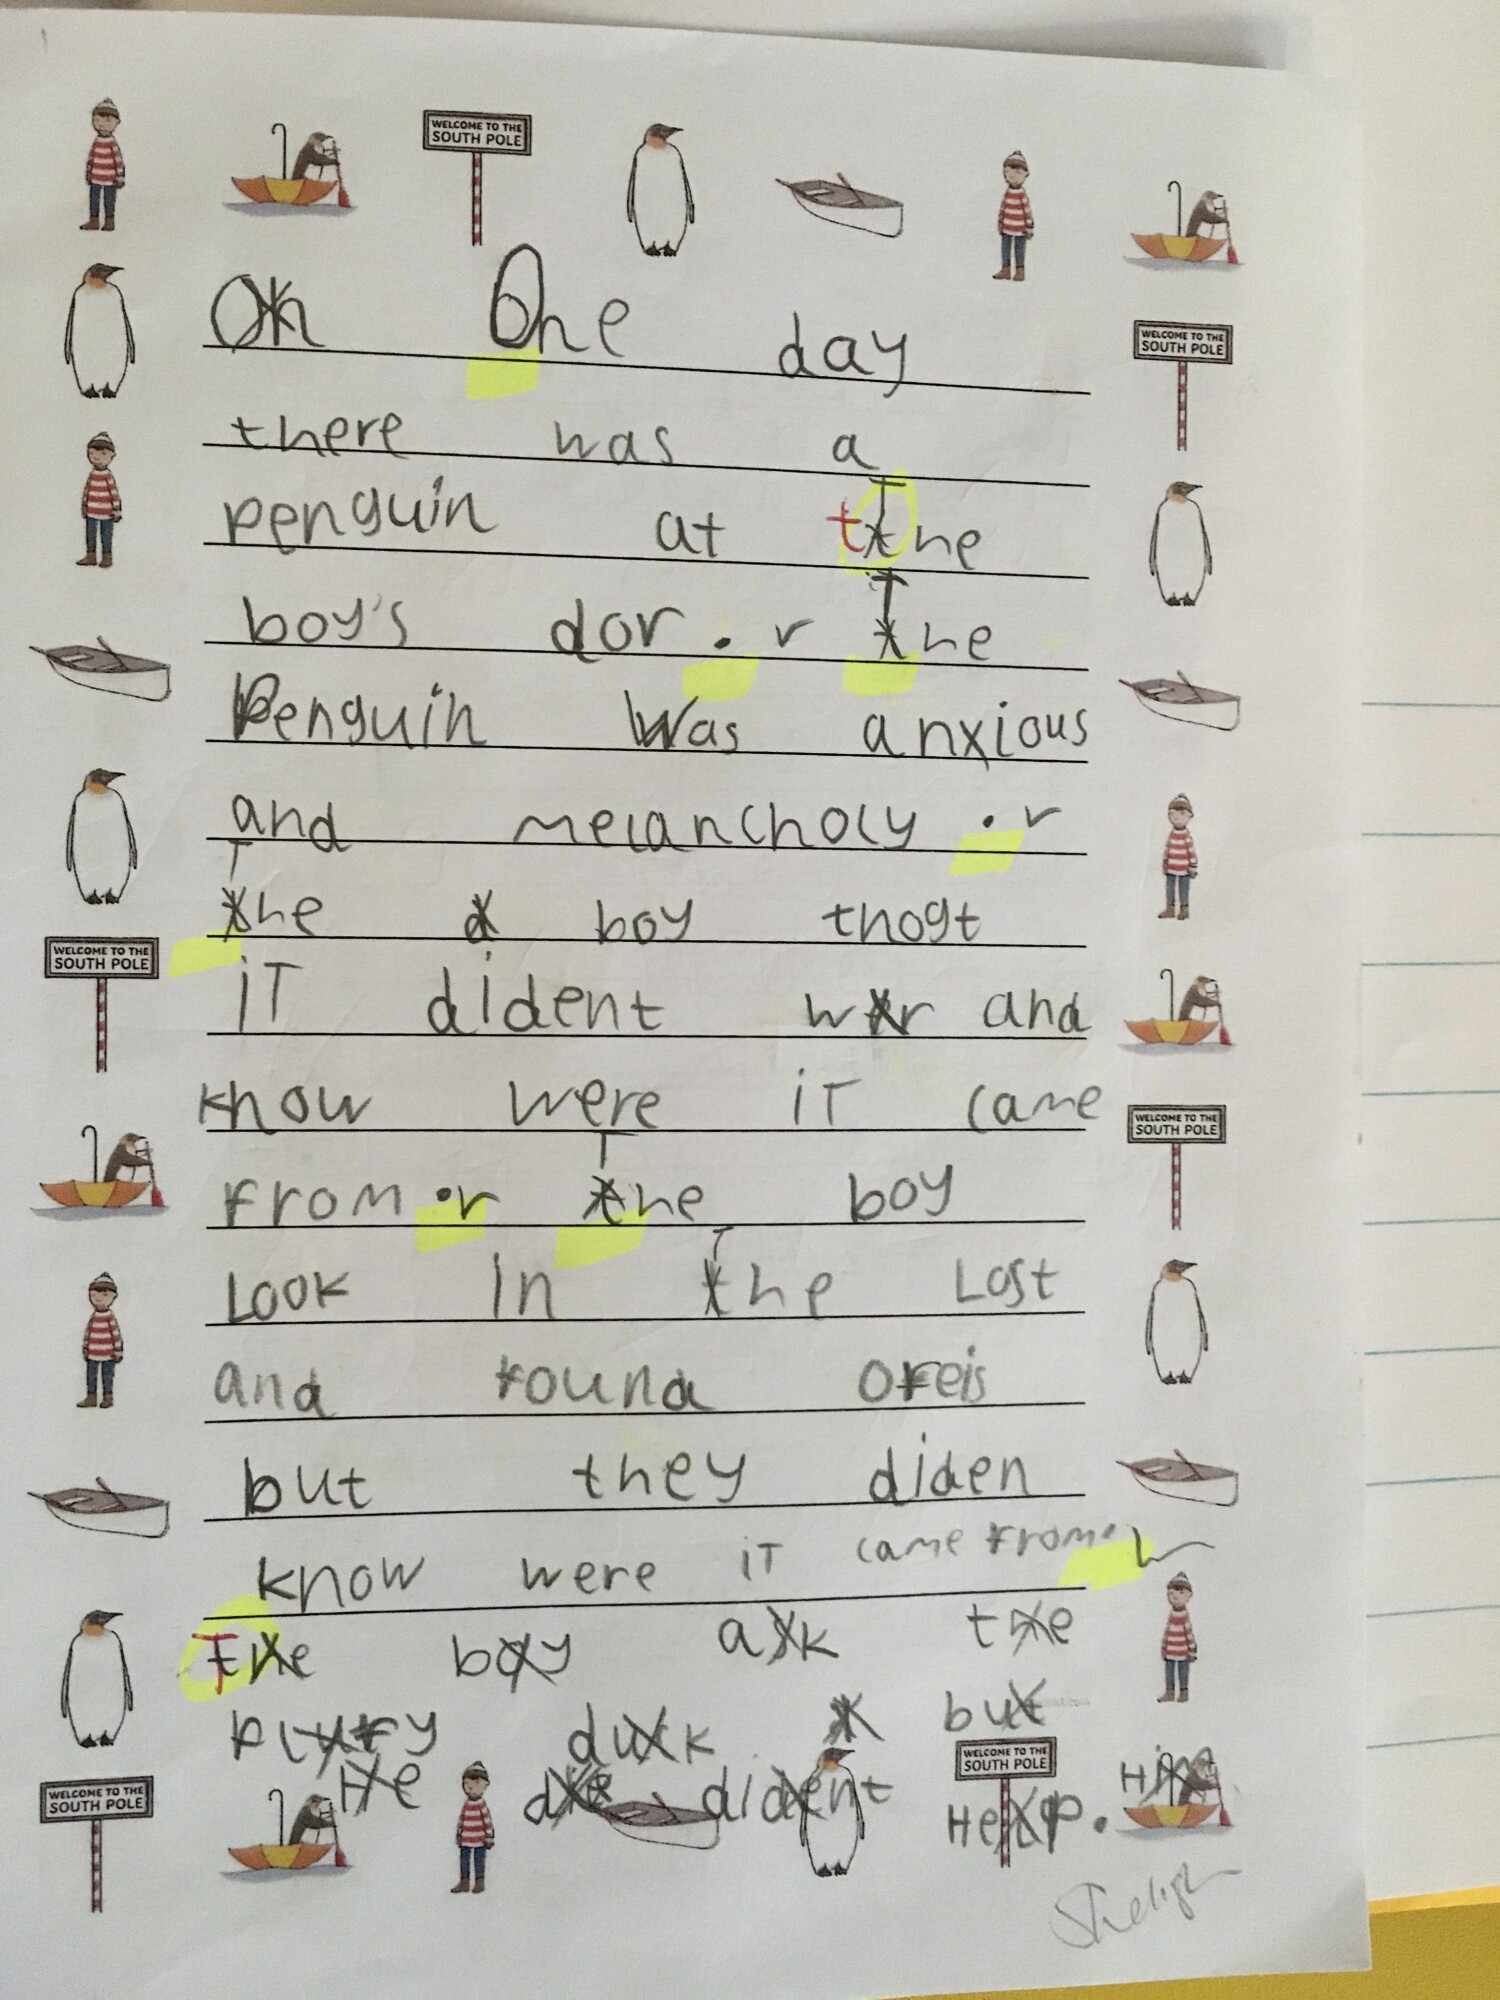 WELCOME TO THE
SOUTH POLE
On One day
there was a
penguin at the
boy's dor . r The
Penguin was anxious
and melancholy . r
The a boy thogt
iT dident wer and
know were iT came
from . r The boy
Look in The Lost
and found ofeis
but they diden
know were iT came from.
The boy ask the
but
duck
He dident Him
HeLp.
WELCOME TO THE
SOUTH POLE
WELCOME TO THE
SOUTH POLE
WELCOME TO THE
SOUTH POLE
WELCOME TO THE
SOUTH POLE
WELCOME TO THE
SOUTH POLE